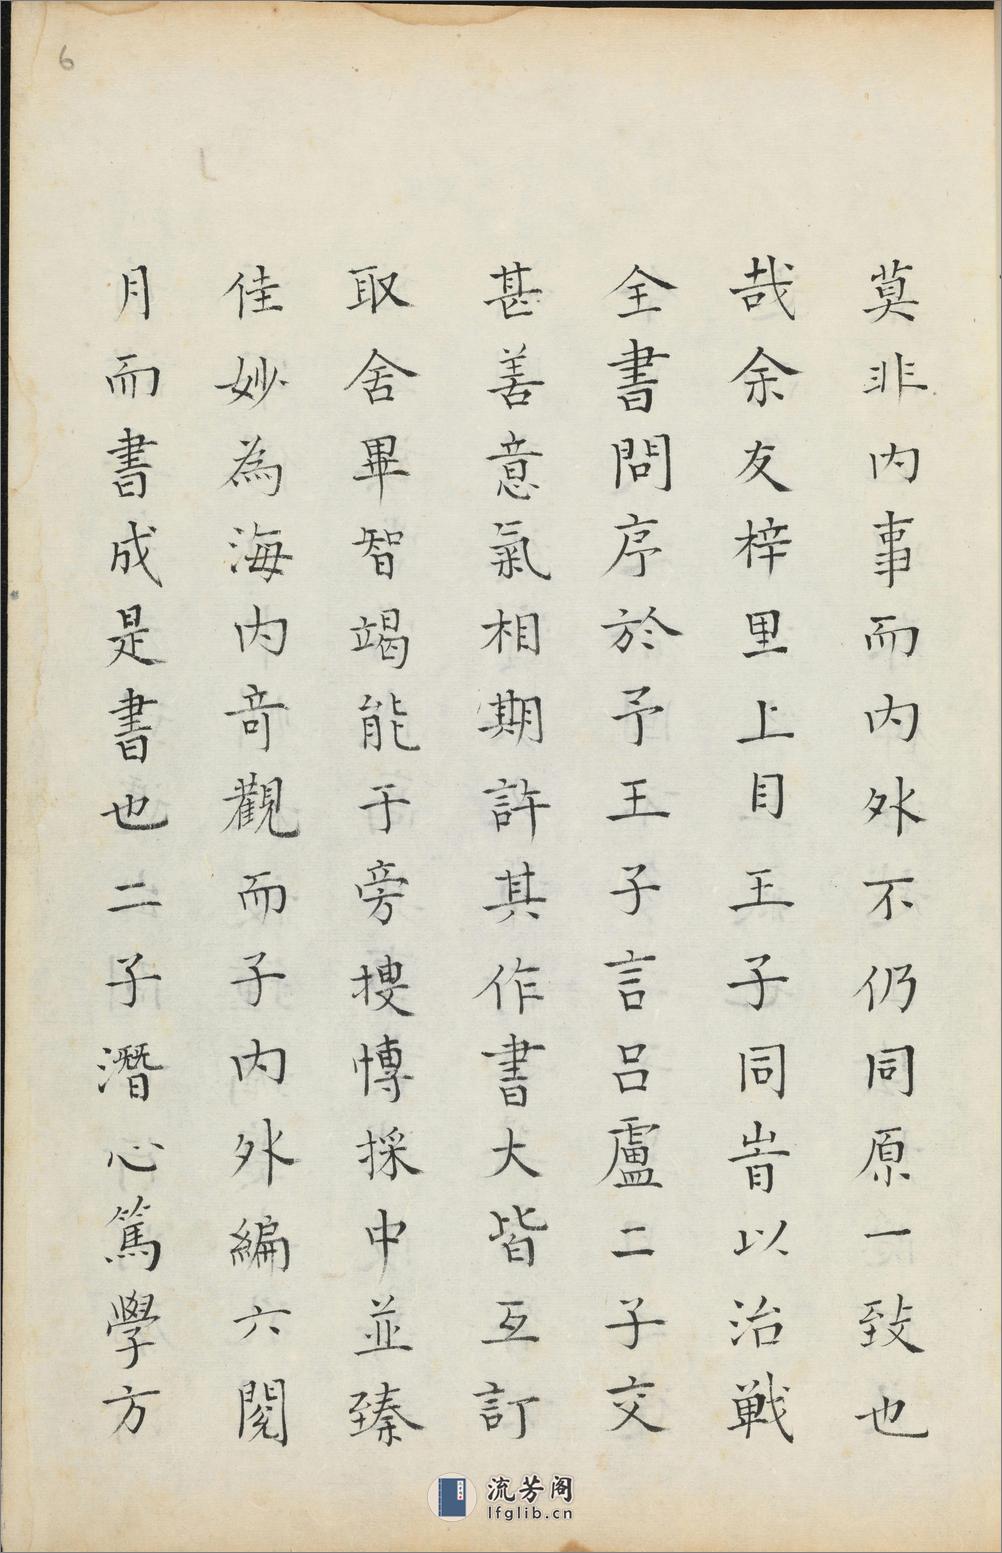 莫非內事而內外不仍同原一致也
哉余友梓里上目王子同峕以治戰
全書問序於予王子言呂盧二子交
甚善意氣相期許其作書大皆互訂
取舍畢智竭能于旁搜博採中並臻
佳妙為海內奇觀而子內外編六閱
月而書成是書也二子潛心篤學方
6
流芳阁
lfglib.cn